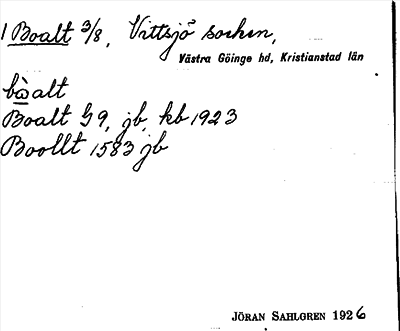 1 Boalt 3/8, Vittsjö socken,
Västra Göinge hd, Kristianstad län
bωalt
Boalt G9, jb, kb 1923
Boollt 1583 jb
JÖRAN SAHLGREN 1926